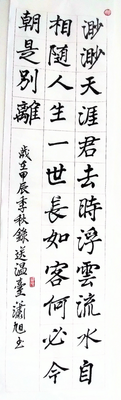 渺渺天涯君去時浮雲流水自
相隨人生一世長如客何必今
朝是別離
歲在甲辰季秋錄送溫臺 瀟旭書